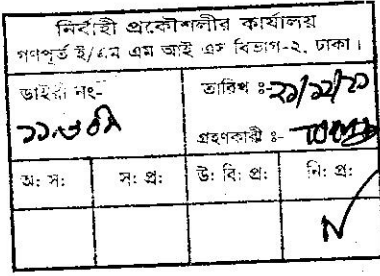 নির্বাহী প্রকৌশলীর কার্যালয়
গণপূর্ত ই/এম এম আই এস বিভাগ-২, ঢাকা।
ডাইরী নং-
তারিখ ঃ-২১/১২/২১
গ্রহণকারী ঃ-
অ: স: স: প্র: উ: বি: প্র: নি: প্র: